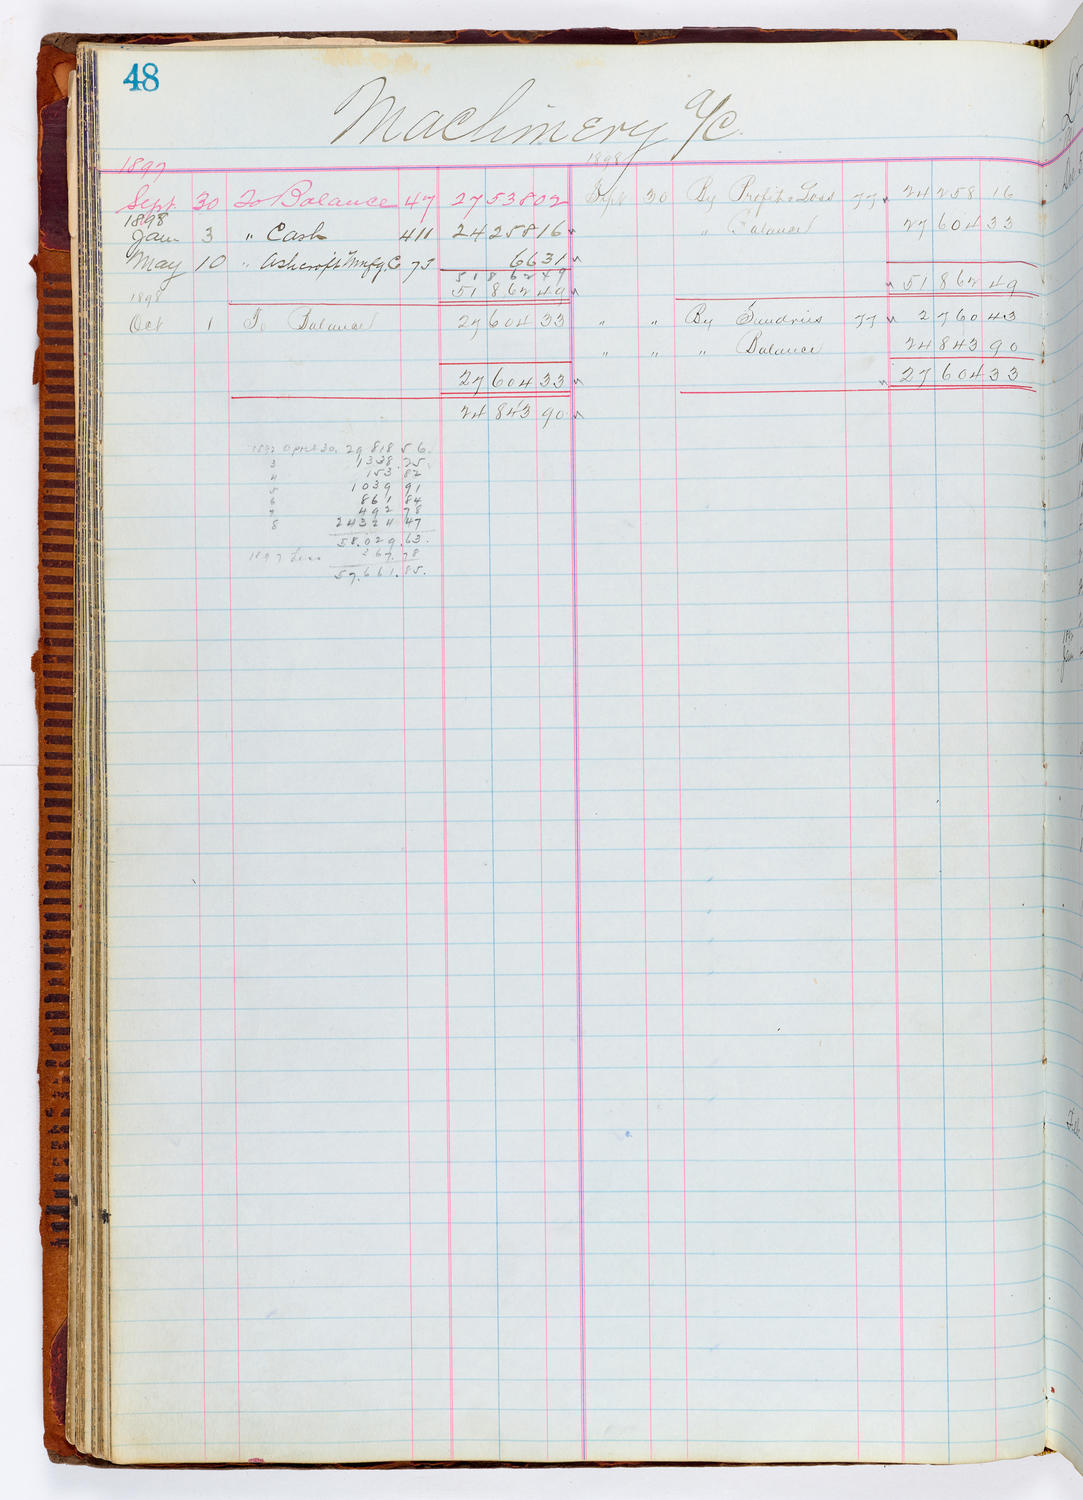 48
Machinery a/c
1897 1898
Sept. 30 To Balance 47 27538 02 Sept 30 By Profit & Loss 77 24258 16
1898
Jan 3 " Cash 411 24258 16 " Balance 27604 33
May 10 " Ashcroft Mnfg. Co 73 66 31
51862 49
1898 51862 49 51862 49
Oct 1 To Balance 27604 33 " " By Sundries 77 2760 43
" " " Balance 24843 90
27604 33 27604 33
24843 90
1892 April 30. 29 818 56.
3 1338.25.
4 153 82
5 1039 91
6 861 84
7 492 78
8 24324 47
58.029.63.
1897 Less 367.78
57.661.85.